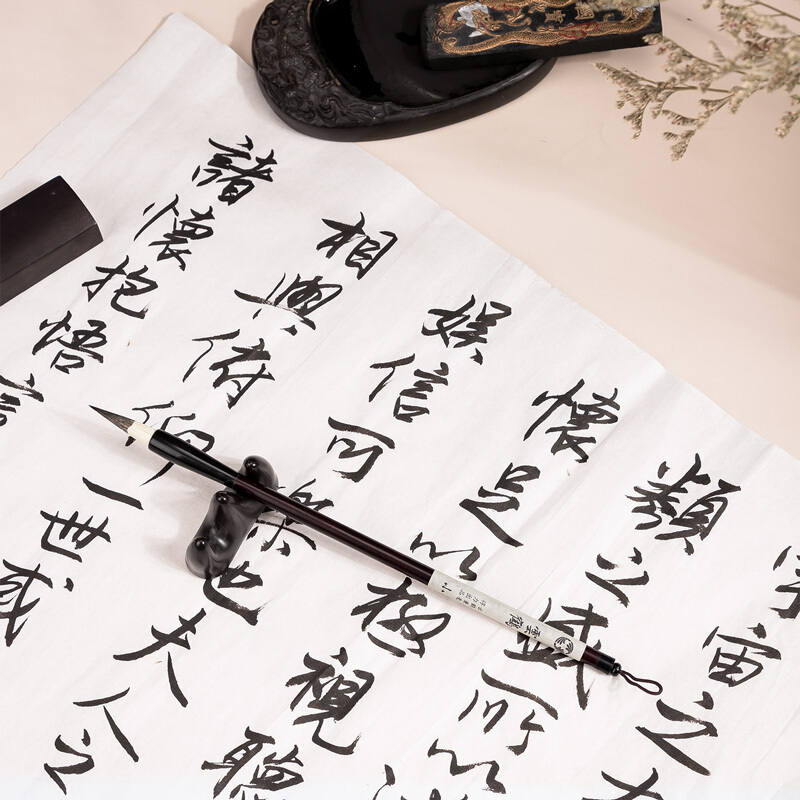 宇宙之
類之盛所以
懷足以極視聽
娛信可樂也夫人之
相與俯仰一世或
諸懷抱悟言
雲鶴
小